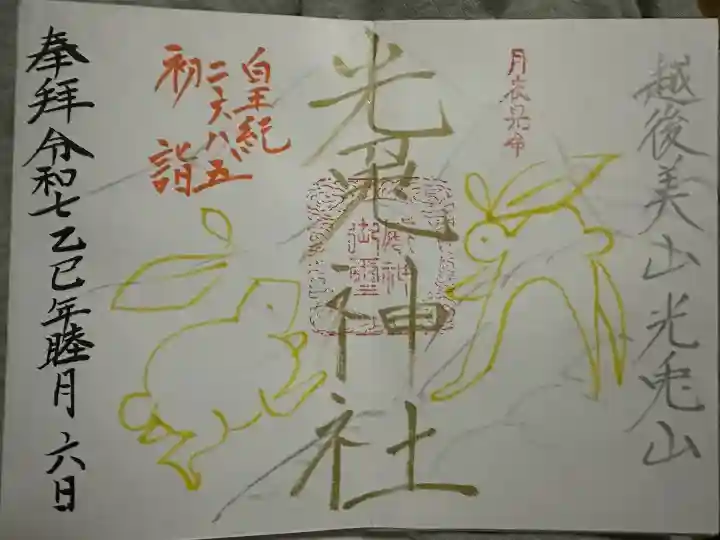 越後美山光兎山
光兎神社
皇紀
二六八五
初詣
奉拝令和七乙巳年睦月六日